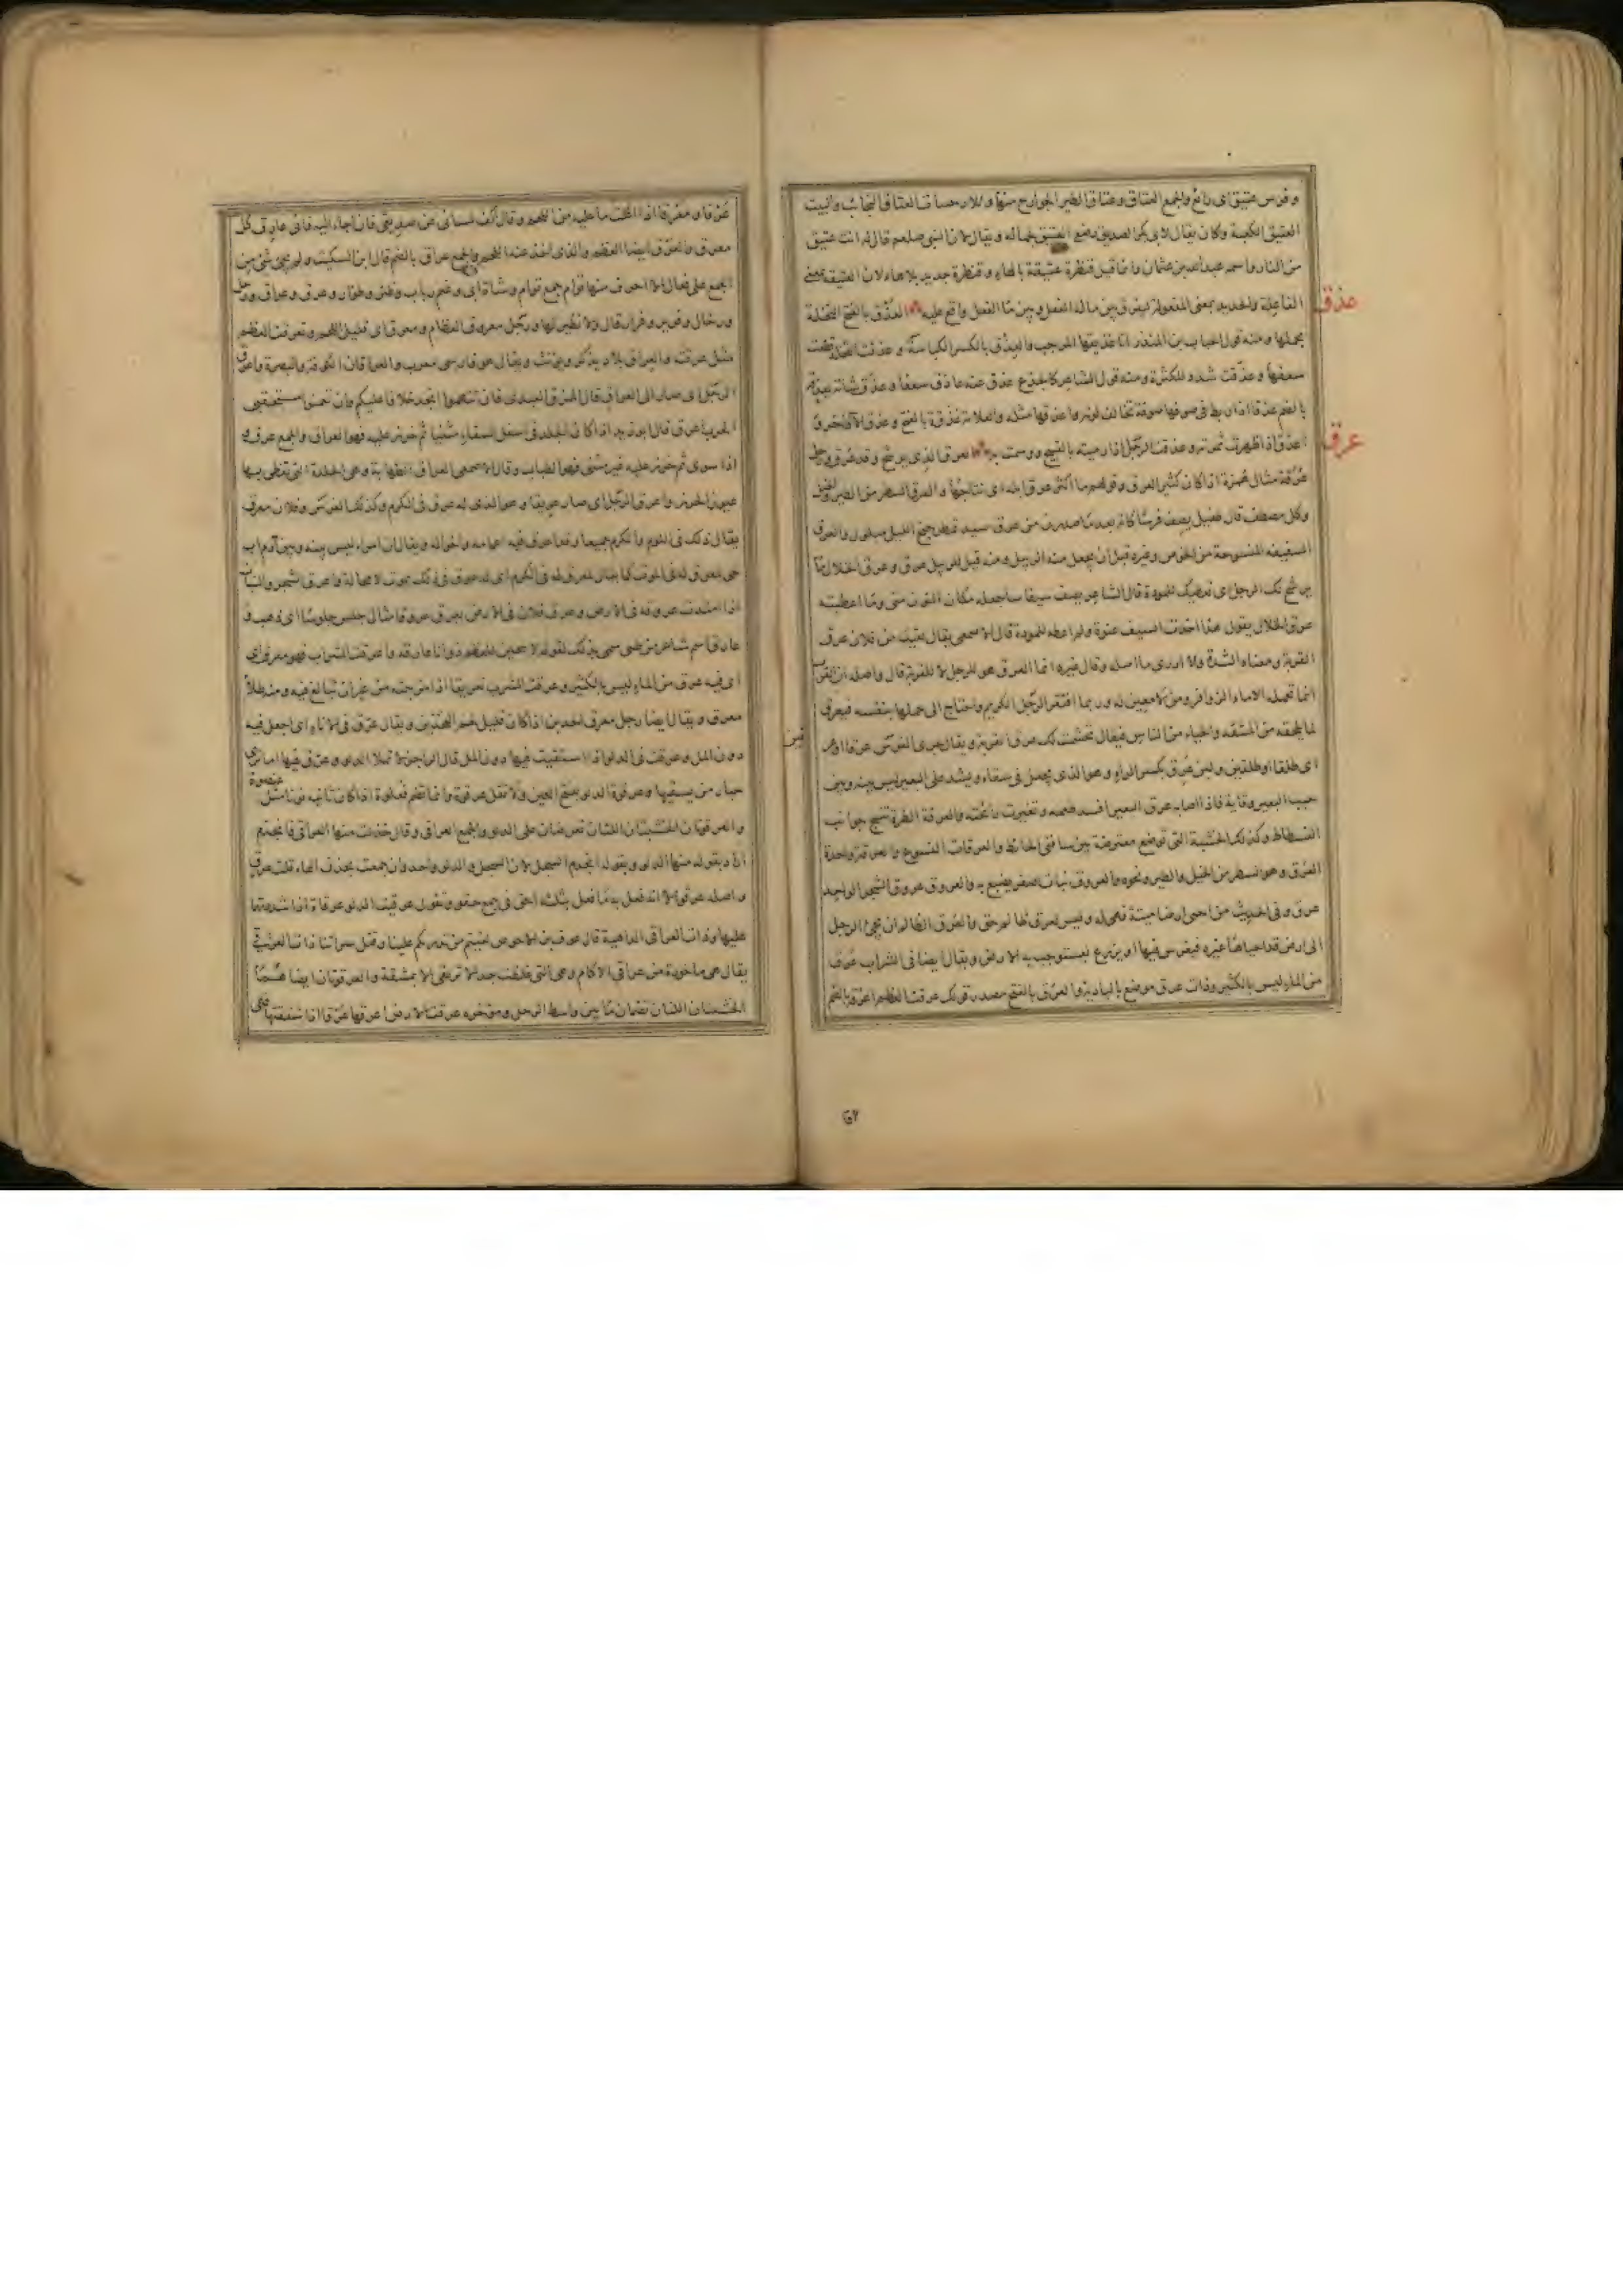 وفرس عتيق اى رائع والجمع العتاق وعتاق الطير الجوارح منها والارحبيات العتاق النجائب والبيت
العتيق الكعبة وكان يقال لابى بكر الصديق رضع العتيق لجماله ويقال لان النبى صلعم قال له انت عتيق
من النار واسمه عبدالله بن عثمان وانما قيل قنطرة عتيقة بالهاء وقنطرة جديد بلا هاء لان العتيقة بمعنى
الفاعلة والجديد بمعنى المفعولة ليفرق بين ما له الفعل وبين ما الفعل واقع عليه العذق بالفتح النخلة
عذق
بحملها ومنه قول الحباب بن المنذر انا عذيقها المرجب والعذق بالكسر الكباسة وعذقت النخلة قطعت
سعفها وعذقت شدد للكثرة ومنه قول الشاعر كالجذع عذق عنه عاذق سعفا وعذق شاته يعذقها
بالضم عذقا اذا ربط فى صوفها صوفة تخالف لونها واعذقها مثله والعلامة عذقة بالفتح وعذق الاذخر و
اعذق اذا ظهرت ثمرته وعذقت الرجل اذا رميته بالقبيح ووسمت به العرق الذى يرشح وقد عرق ورجل
عرق
عرقة مثال همزة اذا كان كثير العرق وقولهم ما اكثر عرق ابله اى نتاجها والعرق السطر من الطير والخيل
وكل مصطف قال طفيل يصف فرسا كانه بعد ما صدرن من عرق سيد تمطر جنح الليل مبلول والعرق
السفيفة المنسوجة من الخوص وغيره قبل ان يجعل منه الزبيل ومنه قيل للزبيل عرق وعرق الخلال ما
يرشح لك الرجل اى يعطيك للمودة قال الشاعر يصف سيفا ساجعله مكان النون منى وما اعطيته
عرق الخلال يقول هذا اخذت السيف عنوة ولم اعطه للمودة قال الاصمعى يقال لقيت من فلان عرق
القربة ومعناه الشدة ولا ادرى ما اصله وقال غيره انما العرق هو للرجل لا للقربة قال واصله ان القرب
انما تحمله الاماء الزوافر ومن لا معين له وربما افتقر الرجل الكريم واحتاج الى حملها بنفسه فيعرق
لما يلحقه من المشقة والحياء من الناس فيقال تجشمت لك عرق القربة ويقال جرى الفرس عرقا او عرقين
اى طلقا او طلقين ولبن عرق بكسر الراء وهو الذى يجعل فى سقاء ويشد على البعير ليس بينه وبين
جنب البعير وقاية فاذا اصابه عرق البعير افسد طعمه وتغيرت رائحته والعرقة الطرة تنسج جوانب
الفسطاط وكذلك الخشبة التى توضع معترضة بين سافى الحائط والعرقات النسوع والعرقة واحدة
العرق وهو السطر من الخيل والطير ونحوه والعروق نبات اصفر يصبغ به والعروق عروق الشجر الواحد
عرق وفى الحديث من احيى ارضا ميتة فهى له وليس لعرق ظالم حق والعرق الظالم ان يجئ الرجل
الى ارض قد احياها غيره فيغرس فيها او يزرع ليستوجب به الارض ويقال ايضا فى الشراب عرق
من الماء ليس بالكثير وذات عرق موضع بالبادية والعرق بالفتح مصدر قولك عرقت العظم اعرقه بالضم
عرقا ومعرقا اذا اكلت ما عليه من اللحم وقال اكف لسانى عن صديقى فان اجاء اليه فانى عارق كل
معرق والعرق ايضا العظم والذى اخذ عنه اللحم والجمع عراق بالضم قال ابن السكيت ولم يجئ شئ من
الجمع على فعال الا احرف منها تؤام جمع توأم وشاة ربى وغنم رباب وظئر وظؤار وعرق وعراق ورخل
ورخال وفرير وفرار قال ولا نظير لها ورجل معروق العظام ومعرق اى قليل اللحم وتعرقت العظم
مثل عرقت والعراق بلاد يذكر ويؤنث ويقال هو فارسى معرب والعراقان الكوفة والبصرة واعرق
الرجل اى صار الى العراق قال الممزق العبدى فان تتهموا انجد خلافا عليكم وان تعمنوا مستحقبى
الحرب اعرق قال ابو زيد اذا كان الجلد فى اسفل السقاء مثنيا ثم خرز عليه فهو العراق والجمع عرق و
اذا سوى ثم خرز عليه غير مثنى فهو الطباب وقال الاصمعى العراق الطبابة وهى الجلدة التى تغطى بها
عيون الخرز واعرق الرجل اى صار عريقا وهو الذى له عرق فى الكرم وكذلك الفرس وفلان معرق
يقال ذلك فى اللوم والكرم جميعا وقد اعرق فيه اعمامه واخواله ويقال ان امرا ليس بينه وبين آدم اب
حى لمعرق له فى الموت كما يقال لمعرق له فى الكرم اى له عرق فى ذلك يموت لا محالة واعرق الشجر والنبات
اذا امتدت عروقه فى الارض وعرق فلان فى الارض يعرق عروقا مثال جلس جلوسا اى ذهب و
عارق اسم شاعر من طى سمى بذلك لقوله لانتحين للعظم ذو انا عارقه واعرقت الشراب فهو معرق اى
اى فيه عرق من الماء ليس بالكثير وعرقت الشرب تعريقا اذا مزجته من غير ان تبالغ فيه ومنه طلاء
معرق ويقال ايضا رجل معرق الخدين اذا كان قليل لحم الخدين ويقال عرق فى الاناء اى اجعل فيه
دون الملء وعرقت فى الدلو اذا استقيت فيها دون الملء قال الراجز لا تملا الدلو وعرق فيها اما ترى
حبار من يسقيها وعرقوة الدلو بفتح العين ولا تقل عرقوة وانما تضم فعلوة اذا كان ثانيه نونا مثل
عنصوة
والعرقوتان الخشبتان اللتان تعرضان على الدلو والجمع العراقى وقال خذلت منها العراقى فانجذم
اراد بقوله منها الدلو وبقوله انجذم السجل لان السجل والدلو واحد وان جمعت بحذف الهاء قلت عرق
واصله عرقو الا انه فعل به ما فعل بثلثة احق فى جمع حقو وتقول عرقيت الدلو عرقاة اذا شددتها
عليها وذات العراقى الداهية قال عوف بن الاحوص لقيتم من تدرئكم علينا وقتل سراتنا ذات العراقى
يقال هى ماخوذة من عراقى الاكام وهى التى غلظت جدا لا ترتقى الا بمشقة والعرقوتان ايضا هما
الخشبتان اللتان تضمان ما بين واسط الرحل ومؤخره عرقت الارض اعزقها عزقا اذا شققتها